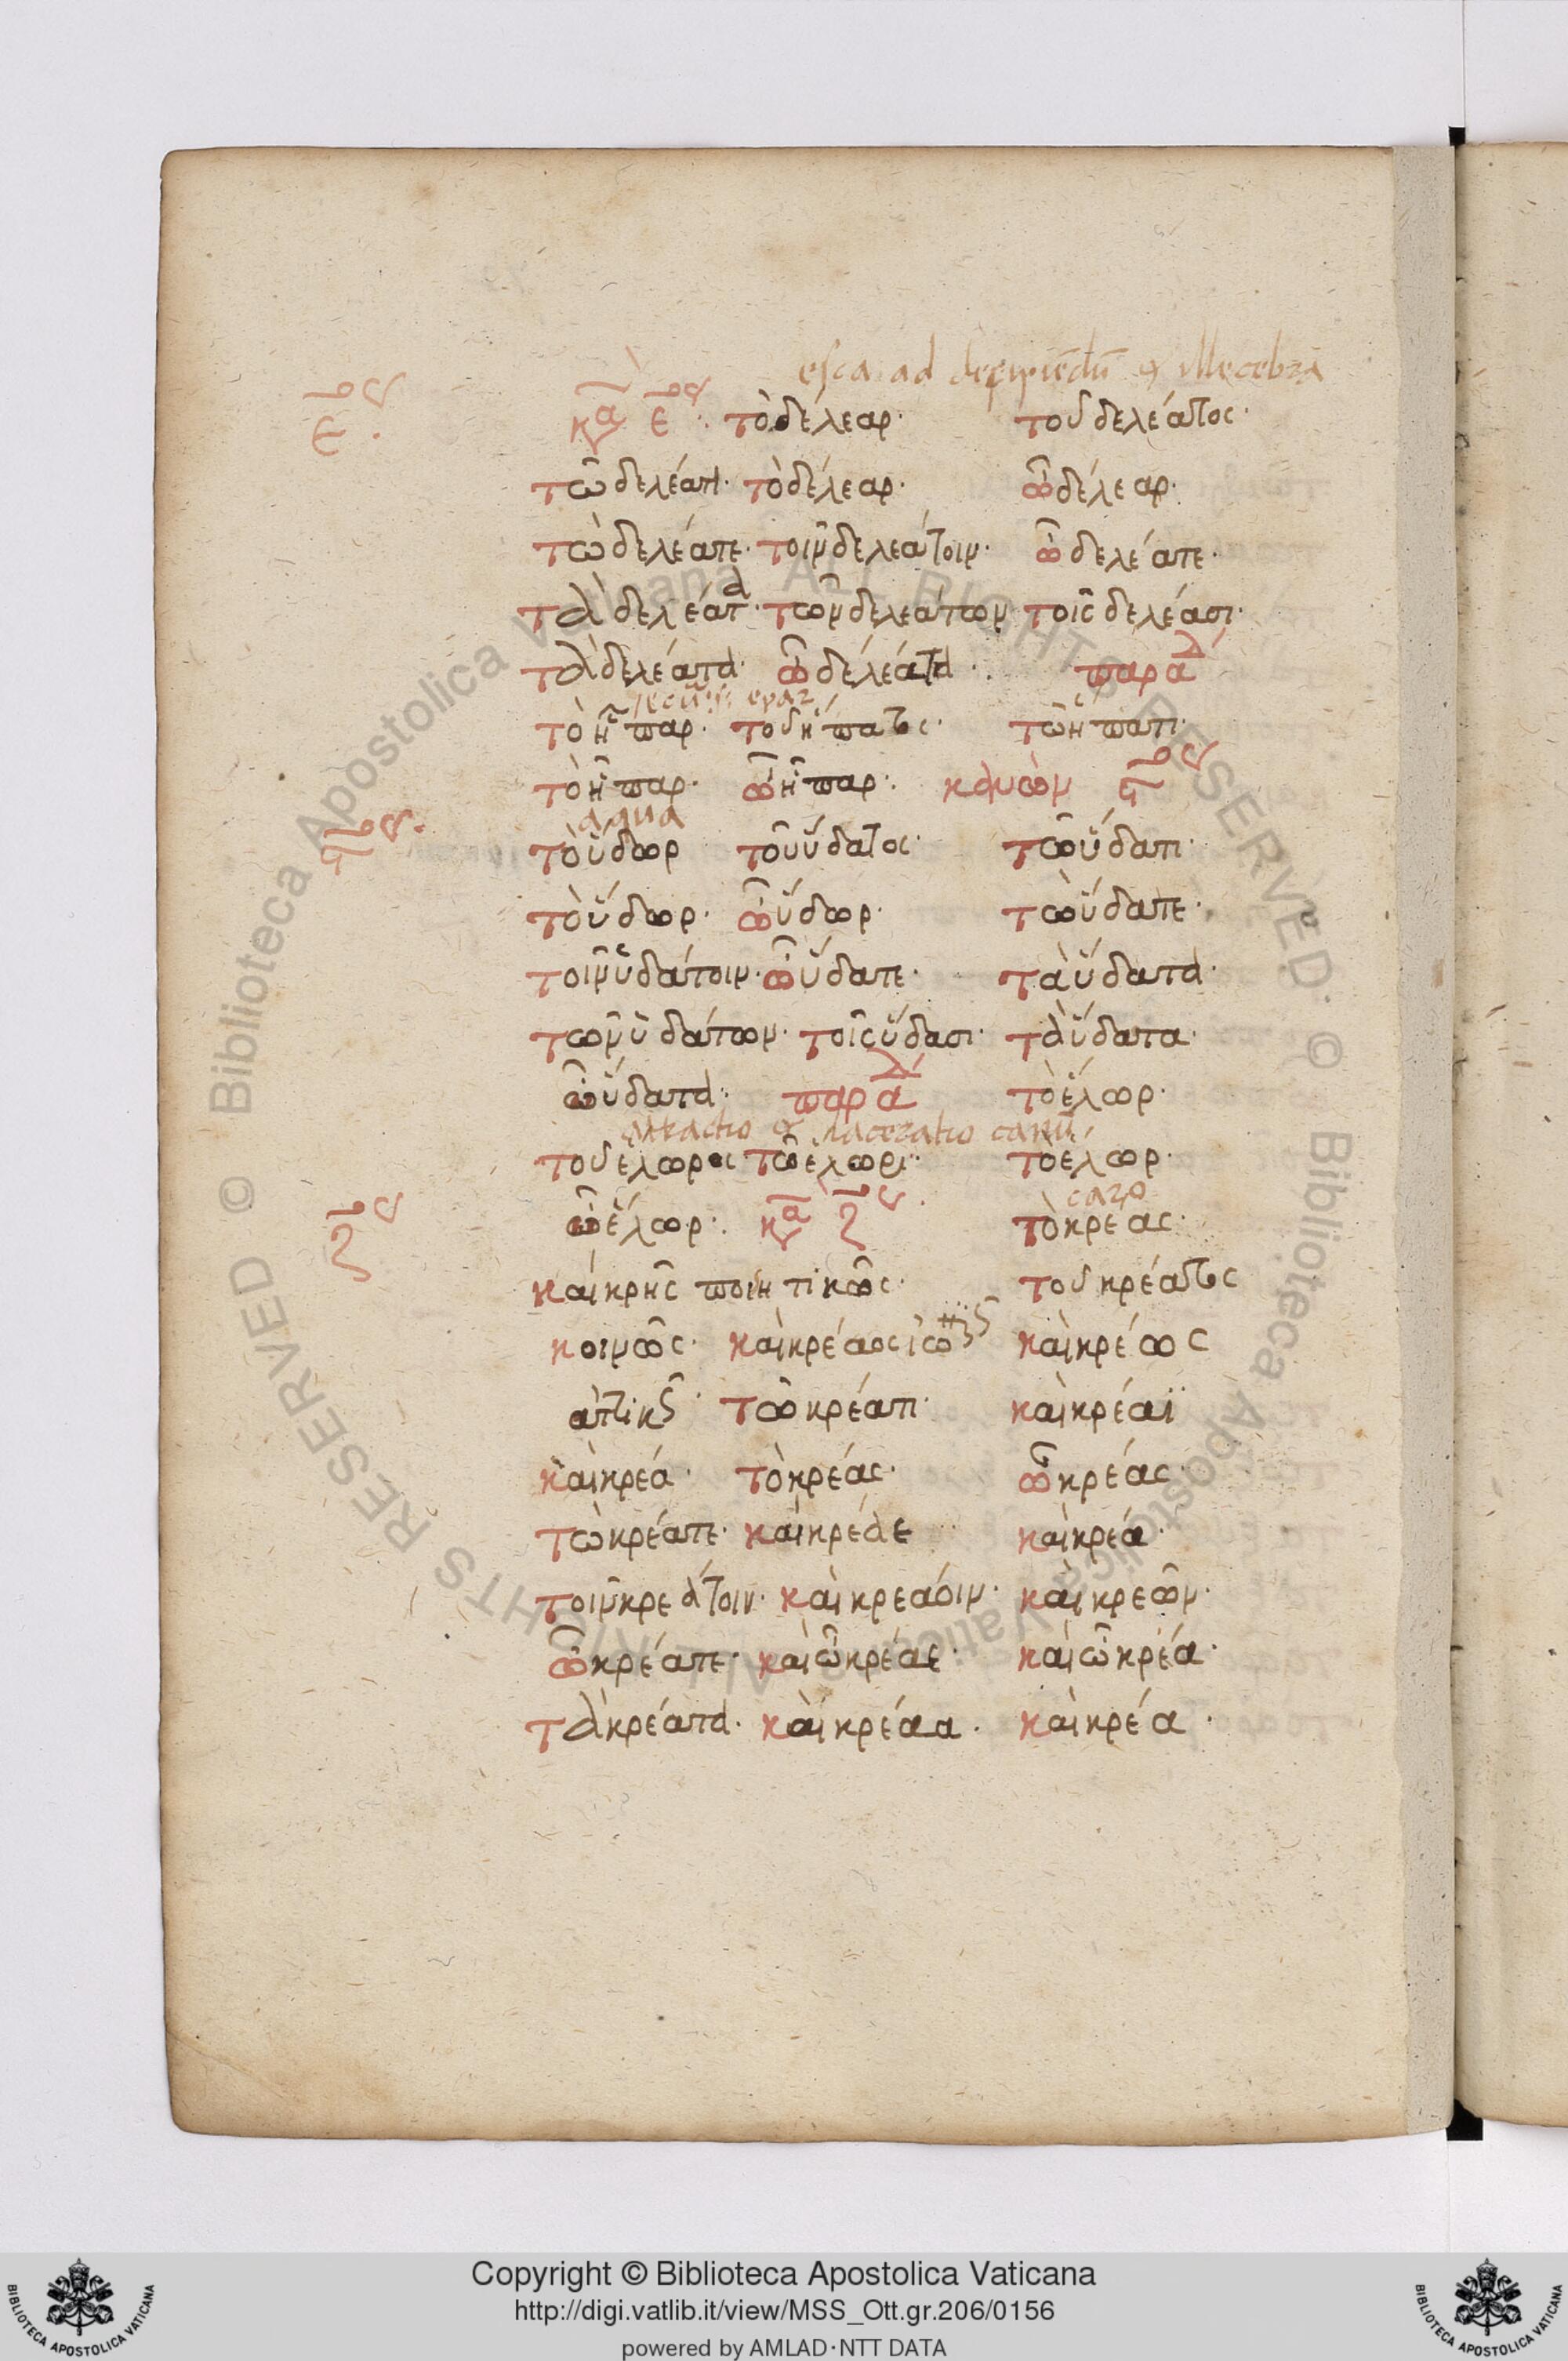 esca ad decipiendū & illecebrā
ε ος.
κα ε ος· τὸ δέλεαρ· τοῦ δελέατος·
τῶ δελέατι· τὸ δέλεαρ· ὦ δέλεαρ·
τὼ δελέατε· τοῖν δελεάτοιν· ὦ δελέατε·
τὰ δελέατα· τῶν δελεάτων τοῖς δελέασι·
τὰ δελέατα· ὦ δελέατα· παρα
τὸ ἧπαρ· τοῦ ἥπατος· τῶ ἥπατι·
τὸ ἧπαρ· ὦ ἧπαρ· κανὼν ος
aqua
τὸ ὕδωρ τοῦ ὕδατος· τῶ ὕδατι·
τὸ ὕδωρ· ὦ ὕδωρ· τὼ ὕδατε·
τοῖν ὑδάτοιν· ὦ ὕδατε· τὰ ὕδατα·
τῶν ὑδάτων· τοῖς ὕδασι· τὰ ὕδατα·
ὦ ὕδατα· παρα τὸ ἕλωρ·
attractio & laceratio canū
τοῦ ἕλωρος τῶ ἕλωρι· τὸ ἕλωρ·
ὦ ἕλωρ· κα ζ ος· τὸ κρέας·
caro
καὶ κρῆς ποιητικῶς· τοῦ κρέατος
κοινῶς· καὶ κρέαος ἰω καὶ κρέως
ἀττικς· τῶ κρέατι· καὶ κρέαϊ
καὶ κρέα· τὸ κρέας· ὦ κρέας·
τὼ κρέατε· καὶ κρέαε καὶ κρέα·
τοῖν κρεάτοιν· καὶ κρεάοιν· καὶ κρεῶν·
ὦ κρέατε· καὶ ὦ κρέαε· καὶ ὦ κρέα·
τὰ κρέατα· καὶ κρέαα· καὶ κρέα·
Copyright © Biblioteca Apostolica Vaticana
http://digi.vatlib.it/view/MSS_Ott.gr.206/0156
powered by AMLAD·NTT DATA
BIBLIOTECA APOSTOLICA VATICANA
BIBLIOTECA APOSTOLICA VATICANA